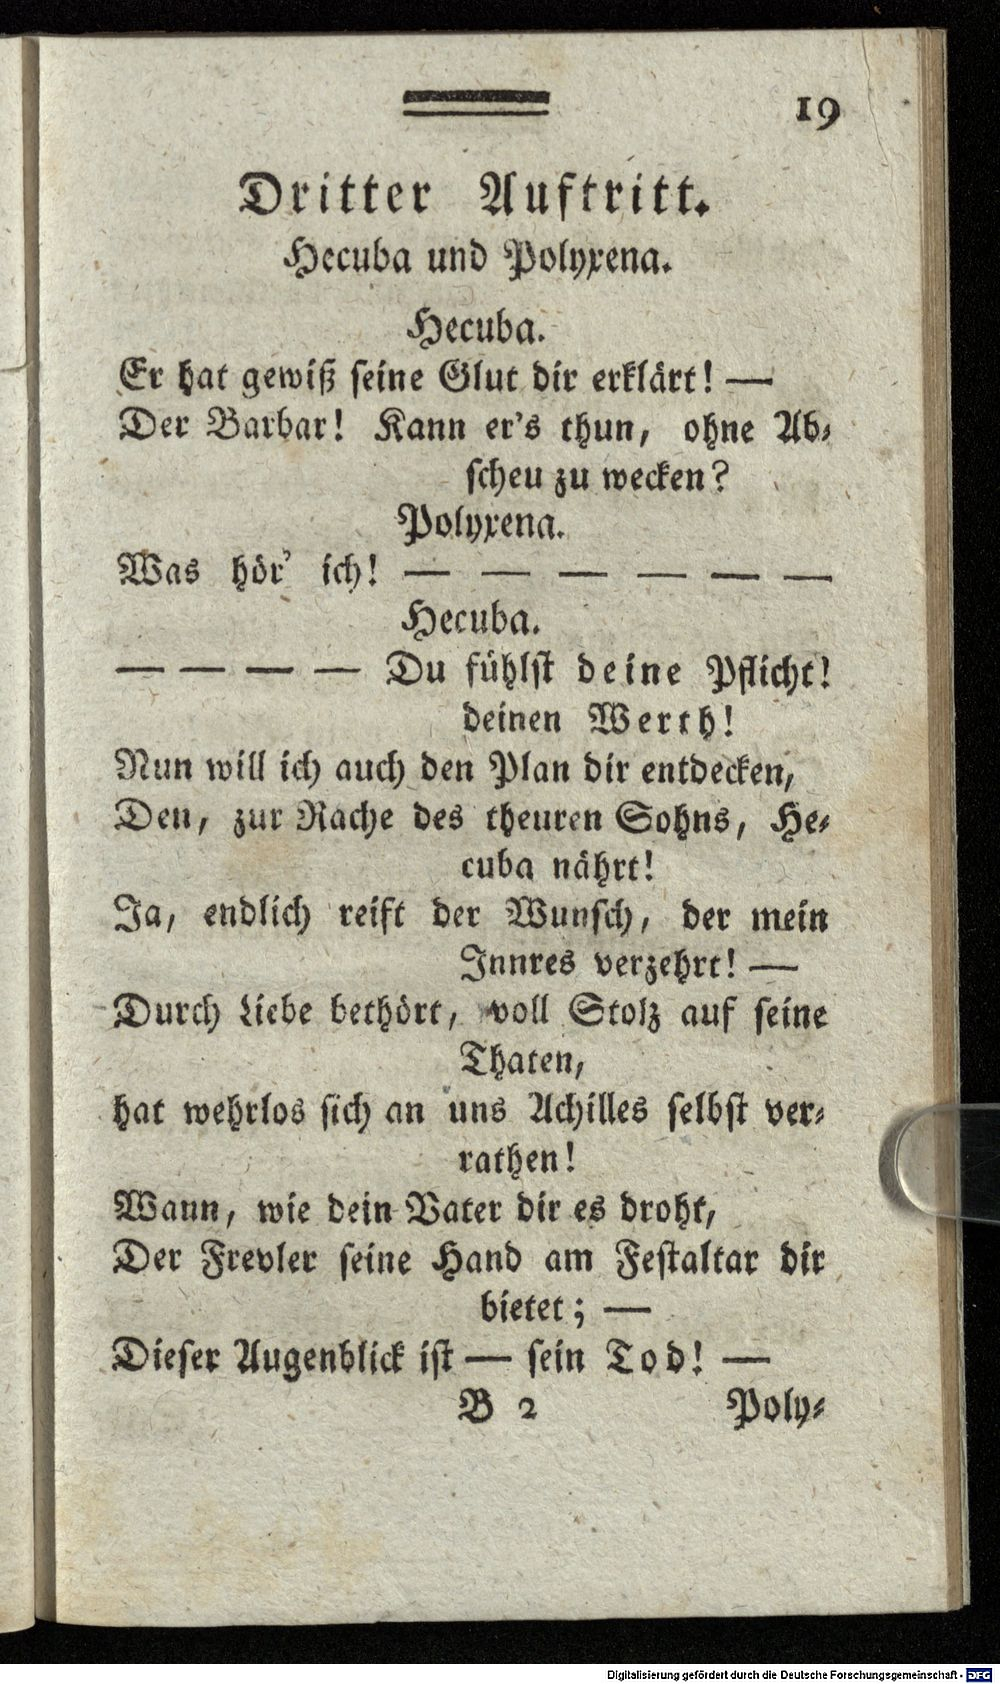 19
Dritter Auftritt.
Hecuba und Polyxena.
Hecuba.
Er hat gewiß seine Glut dir erklärt! —
Der Barbar! Kann er's thun, ohne Ab-
scheu zu wecken?
Polyxena.
Was hör' ich! — — — — — —
Hecuba.
— — — — Du fühlst deine Pflicht!
deinen Werth!
Nun will ich auch den Plan dir entdecken,
Den, zur Rache des theuren Sohns, He-
cuba nährt!
Ja, endlich reift der Wunsch, der mein
Innres verzehrt! —
Durch Liebe bethört, voll Stolz auf seine
Thaten,
hat wehrlos sich an uns Achilles selbst ver-
rathen!
Wann, wie dein Vater dir es droht,
Der Frevler seine Hand am Festaltar dir
bietet; —
Dieser Augenblick ist — sein Tod! —
B 2 Poly-
Digitalisierung gefördert durch die Deutsche Forschungsgemeinschaft - DFG